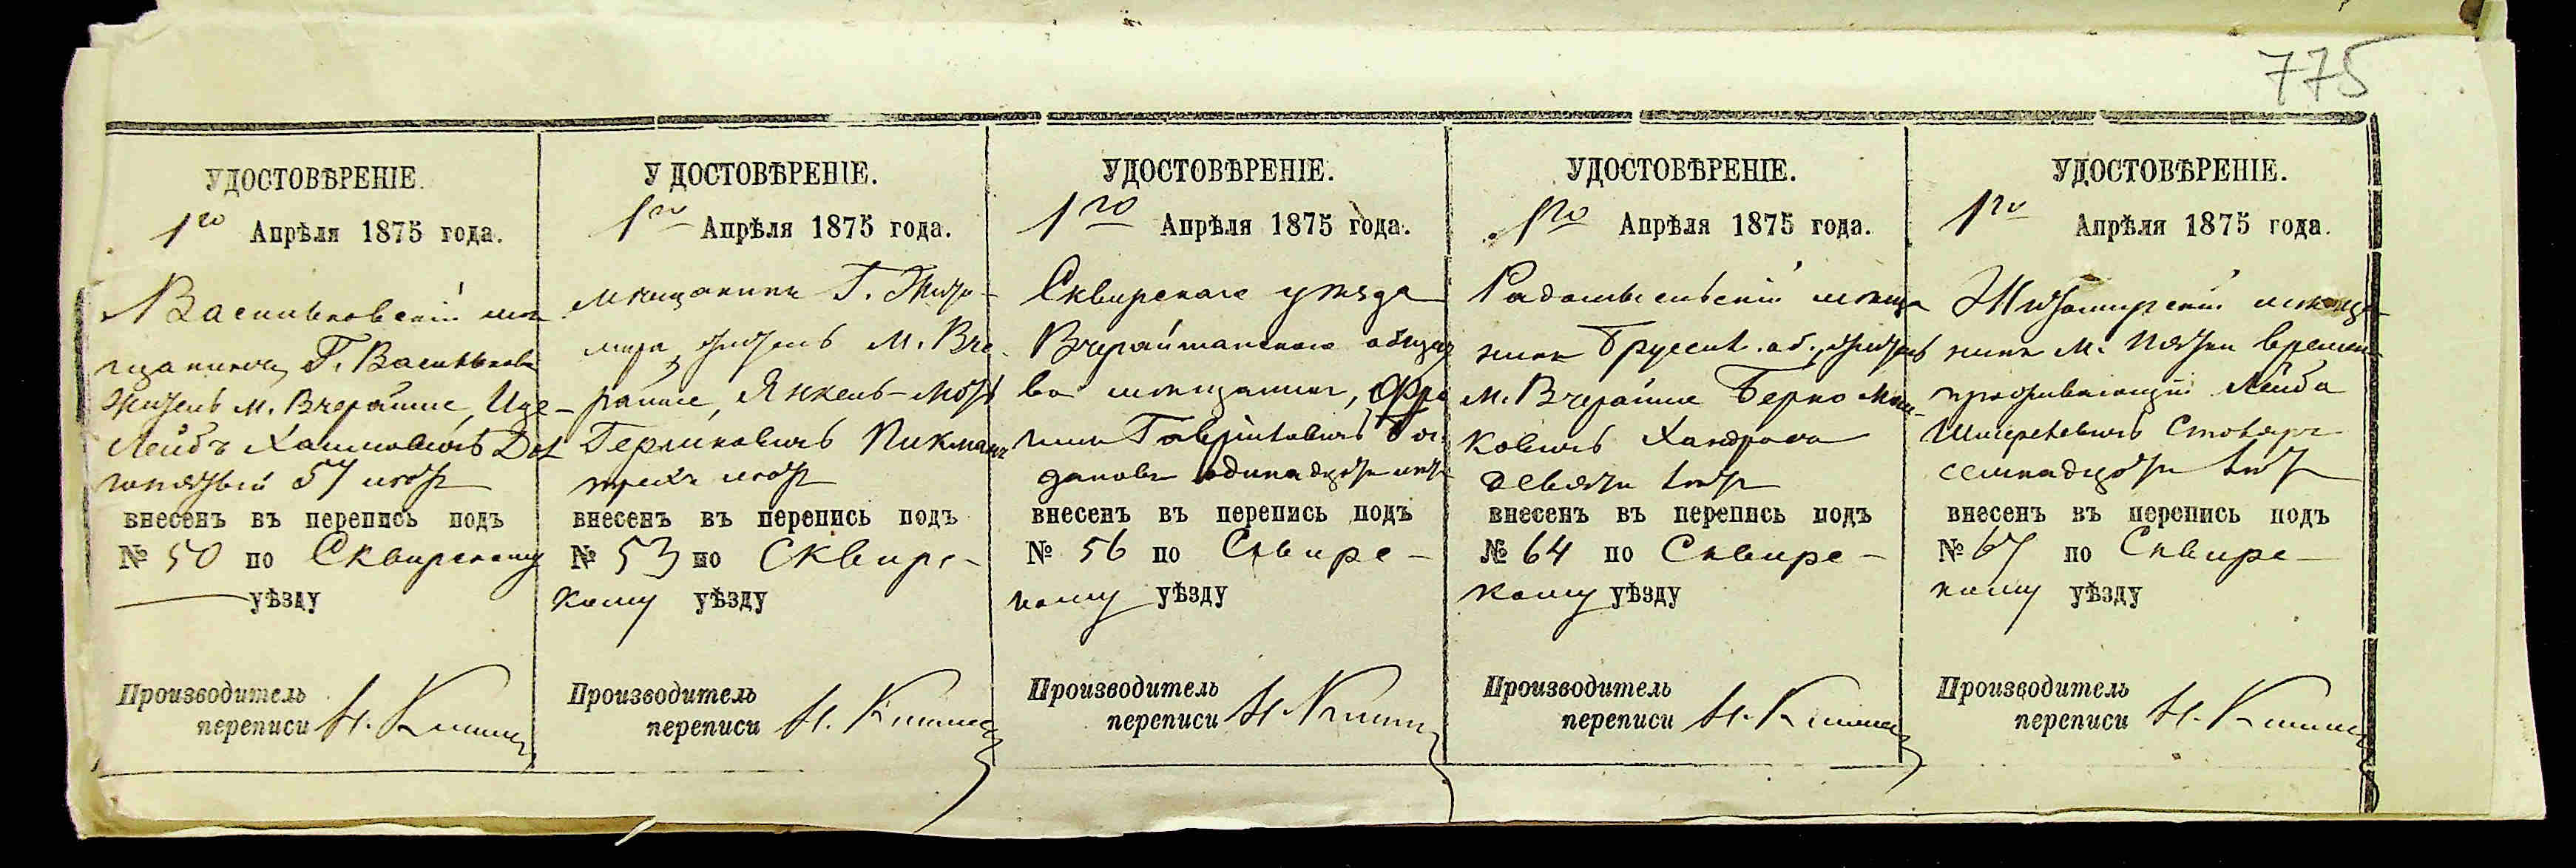 775
УДОСТОВѢРЕНІЕ.
1го Апрѣля 1875 года.
Васильковскій мѣ
щанинъ, Г. Василькова
житель м. Вчерайше, Ице-
Лейбъ Хаимовичъ
57 лѣтъ
внесенъ въ перепись подъ
№ 50 по Сквирскому
уѣзду
Производитель
переписи Н.
УДОСТОВѢРЕНІЕ.
1го Апрѣля 1875 года.
мѣщанинъ Г. Жито-
мира, житель м. Вче
райше, Янкель-Мот
Гершковичъ Пикман
трехъ лѣтъ
внесенъ въ перепись подъ
№ 53 по Сквирс-
кому уѣзду
Производитель
переписи Н.
УДОСТОВѢРЕНІЕ.
1го Апрѣля 1875 года.
Сквирскаго уѣзда
Вчерайшанскаго общес
ва мѣщанин,
Гаврілович Бог
дановъ одинадцати лѣтъ
внесенъ въ перепись подъ
№ 56 по Сквирс-
кому уѣзду
Производитель
переписи Н.
УДОСТОВѢРЕНІЕ.
1го Апрѣля 1875 года.
Радомысльскій мѣща
нинъ Брусил. об., житель
м. Вчерайше Берко Мош
ковичъ
девяти лѣтъ
внесенъ въ перепись подъ
№ 64 по Сквирс-
кому уѣзду
Производитель
переписи Н.
УДОСТОВѢРЕНІЕ.
1го Апрѣля 1875 года.
Житомирскій мѣща-
нинъ м. Пятки времен
проживающій Лейба
Шмеркевичъ Столяръ
семнадцати лѣтъ
внесенъ въ перепись подъ
№ 67 по Сквирс-
кому уѣзду
Производитель
переписи Н.